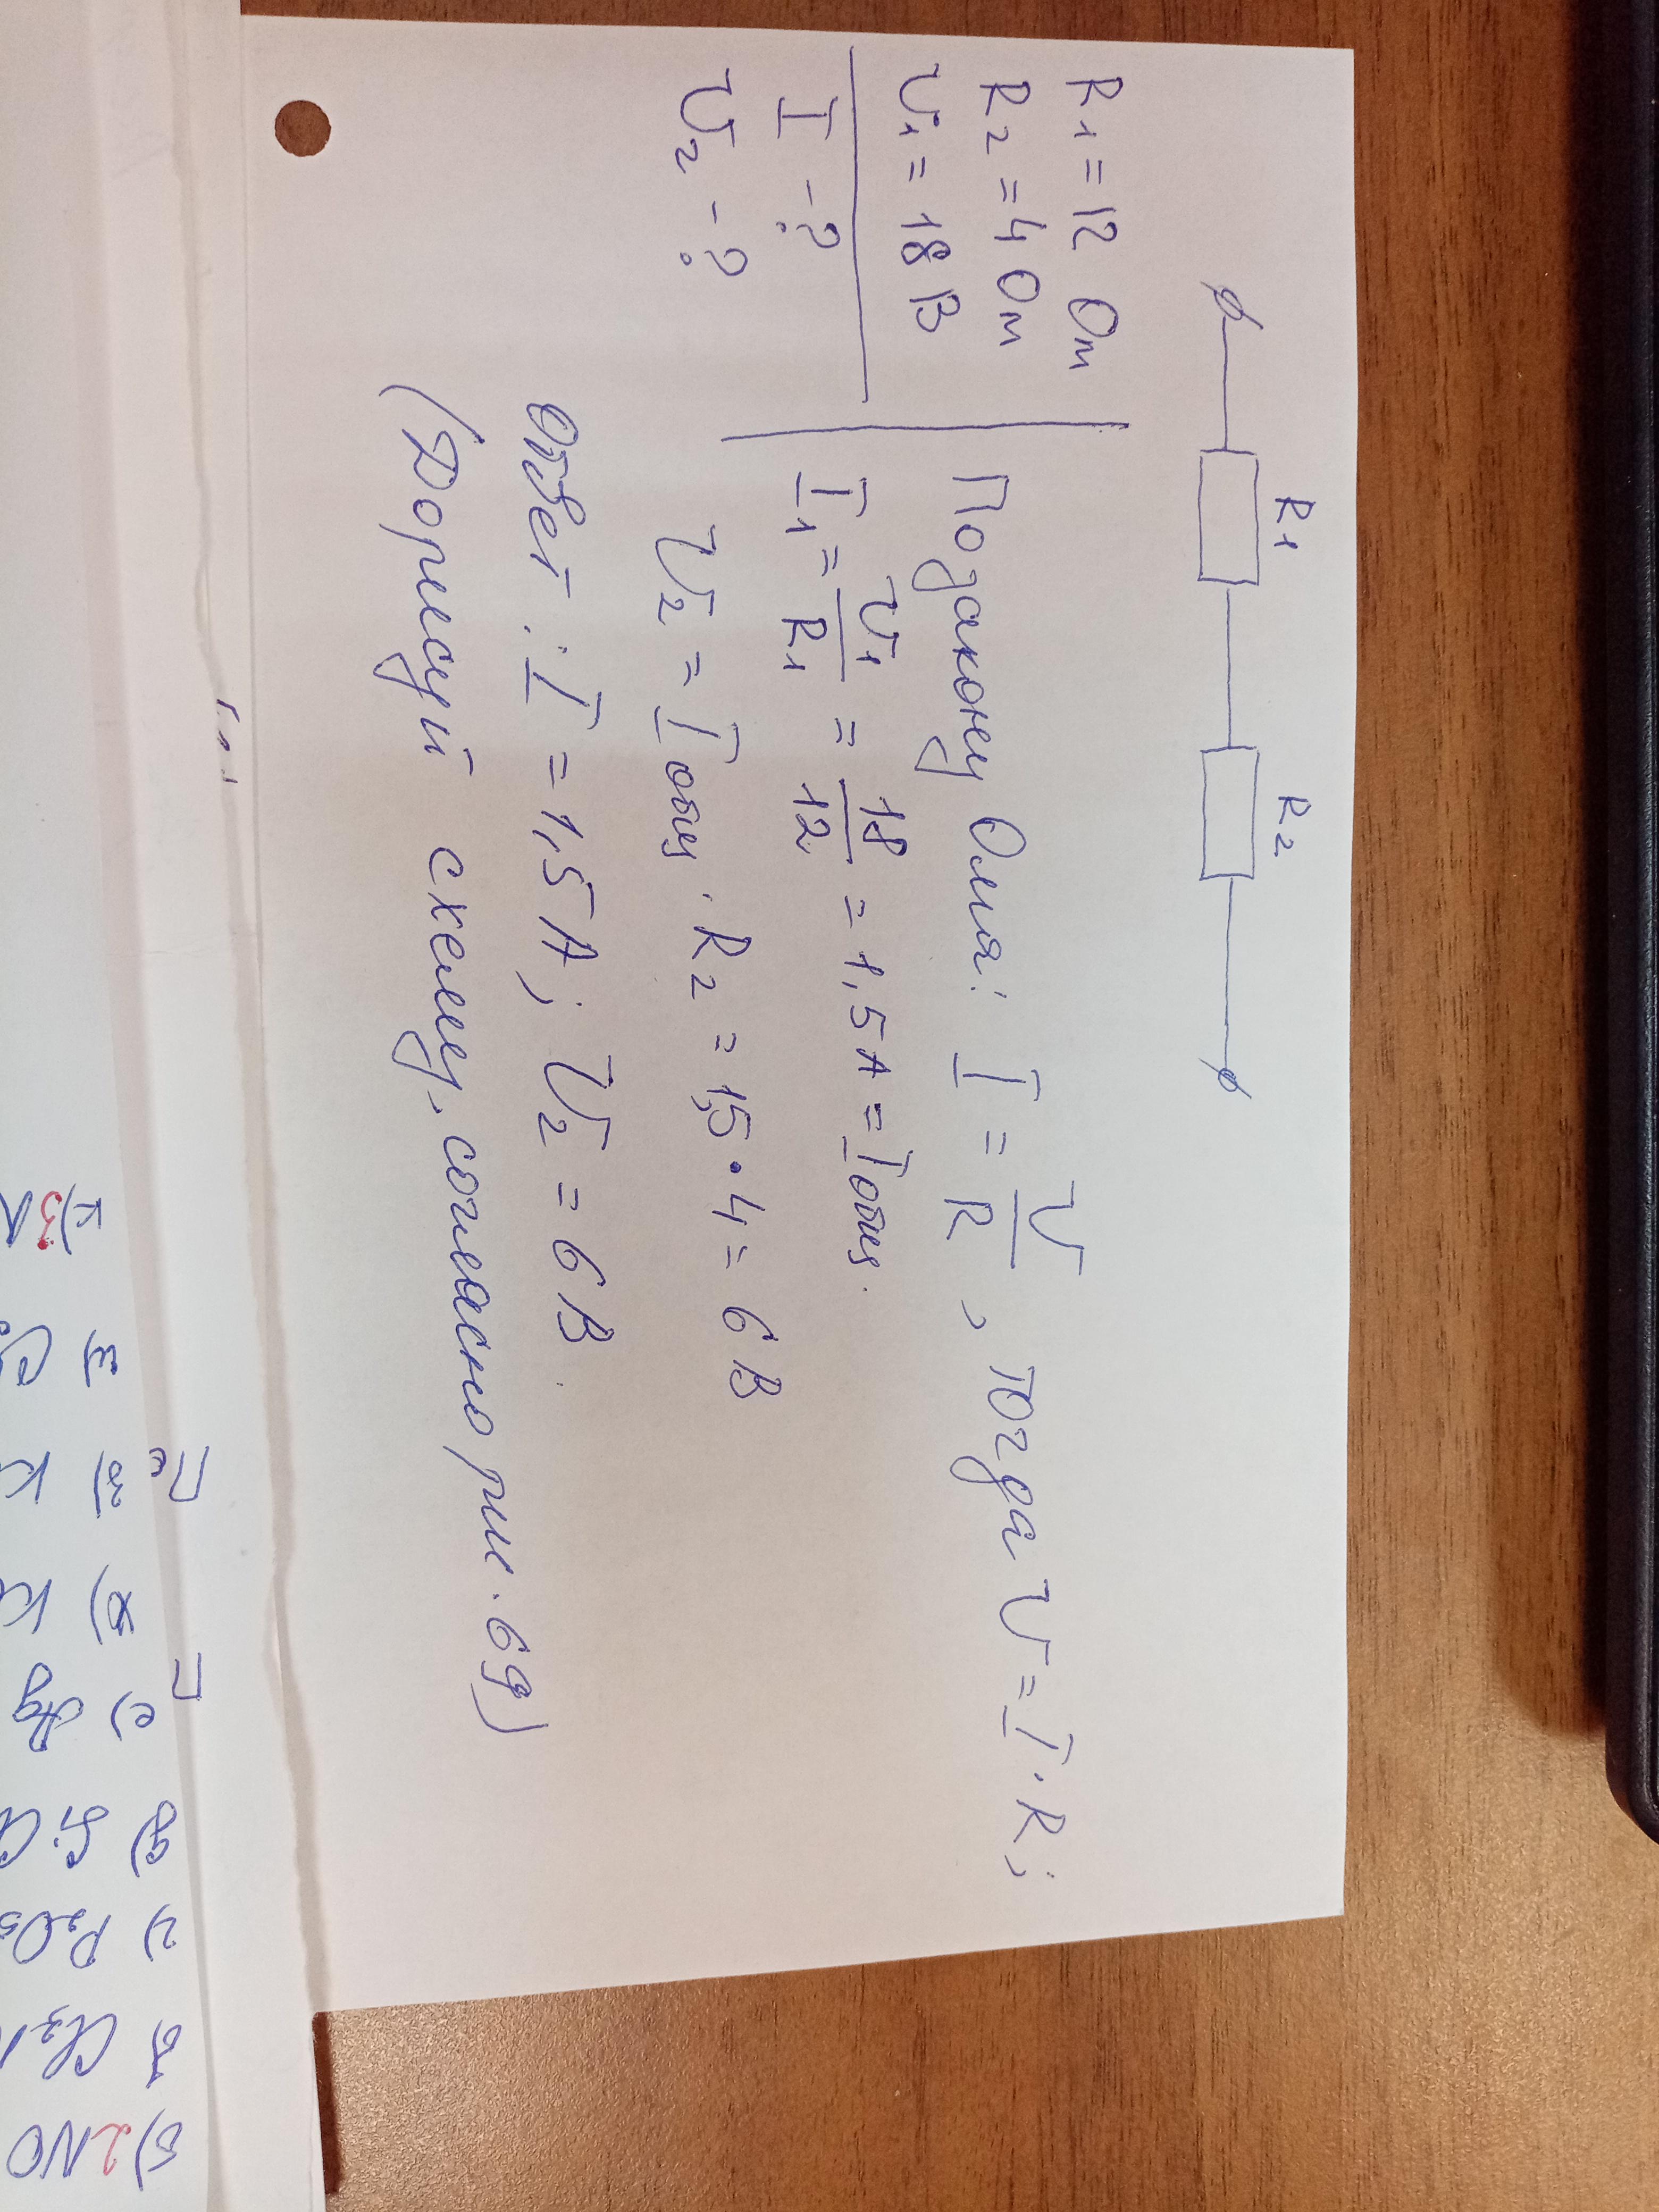 R1 R2
R1 = 12 Ом
R2 = 4 Ом
U1 = 18 В
I - ?
U2 - ?
По закону Ома: I = U/R, тогда U = I · R;
I1 = U1/R1 = 18/12 = 1,5 А = Iобщ.
U2 = Iобщ · R2 = 1,5 · 4 = 6 В
Ответ: I = 1,5 А; U2 = 6 В.
(Дорисуй схему, согласно рис. 69)
б) 2NO
г) P2O5